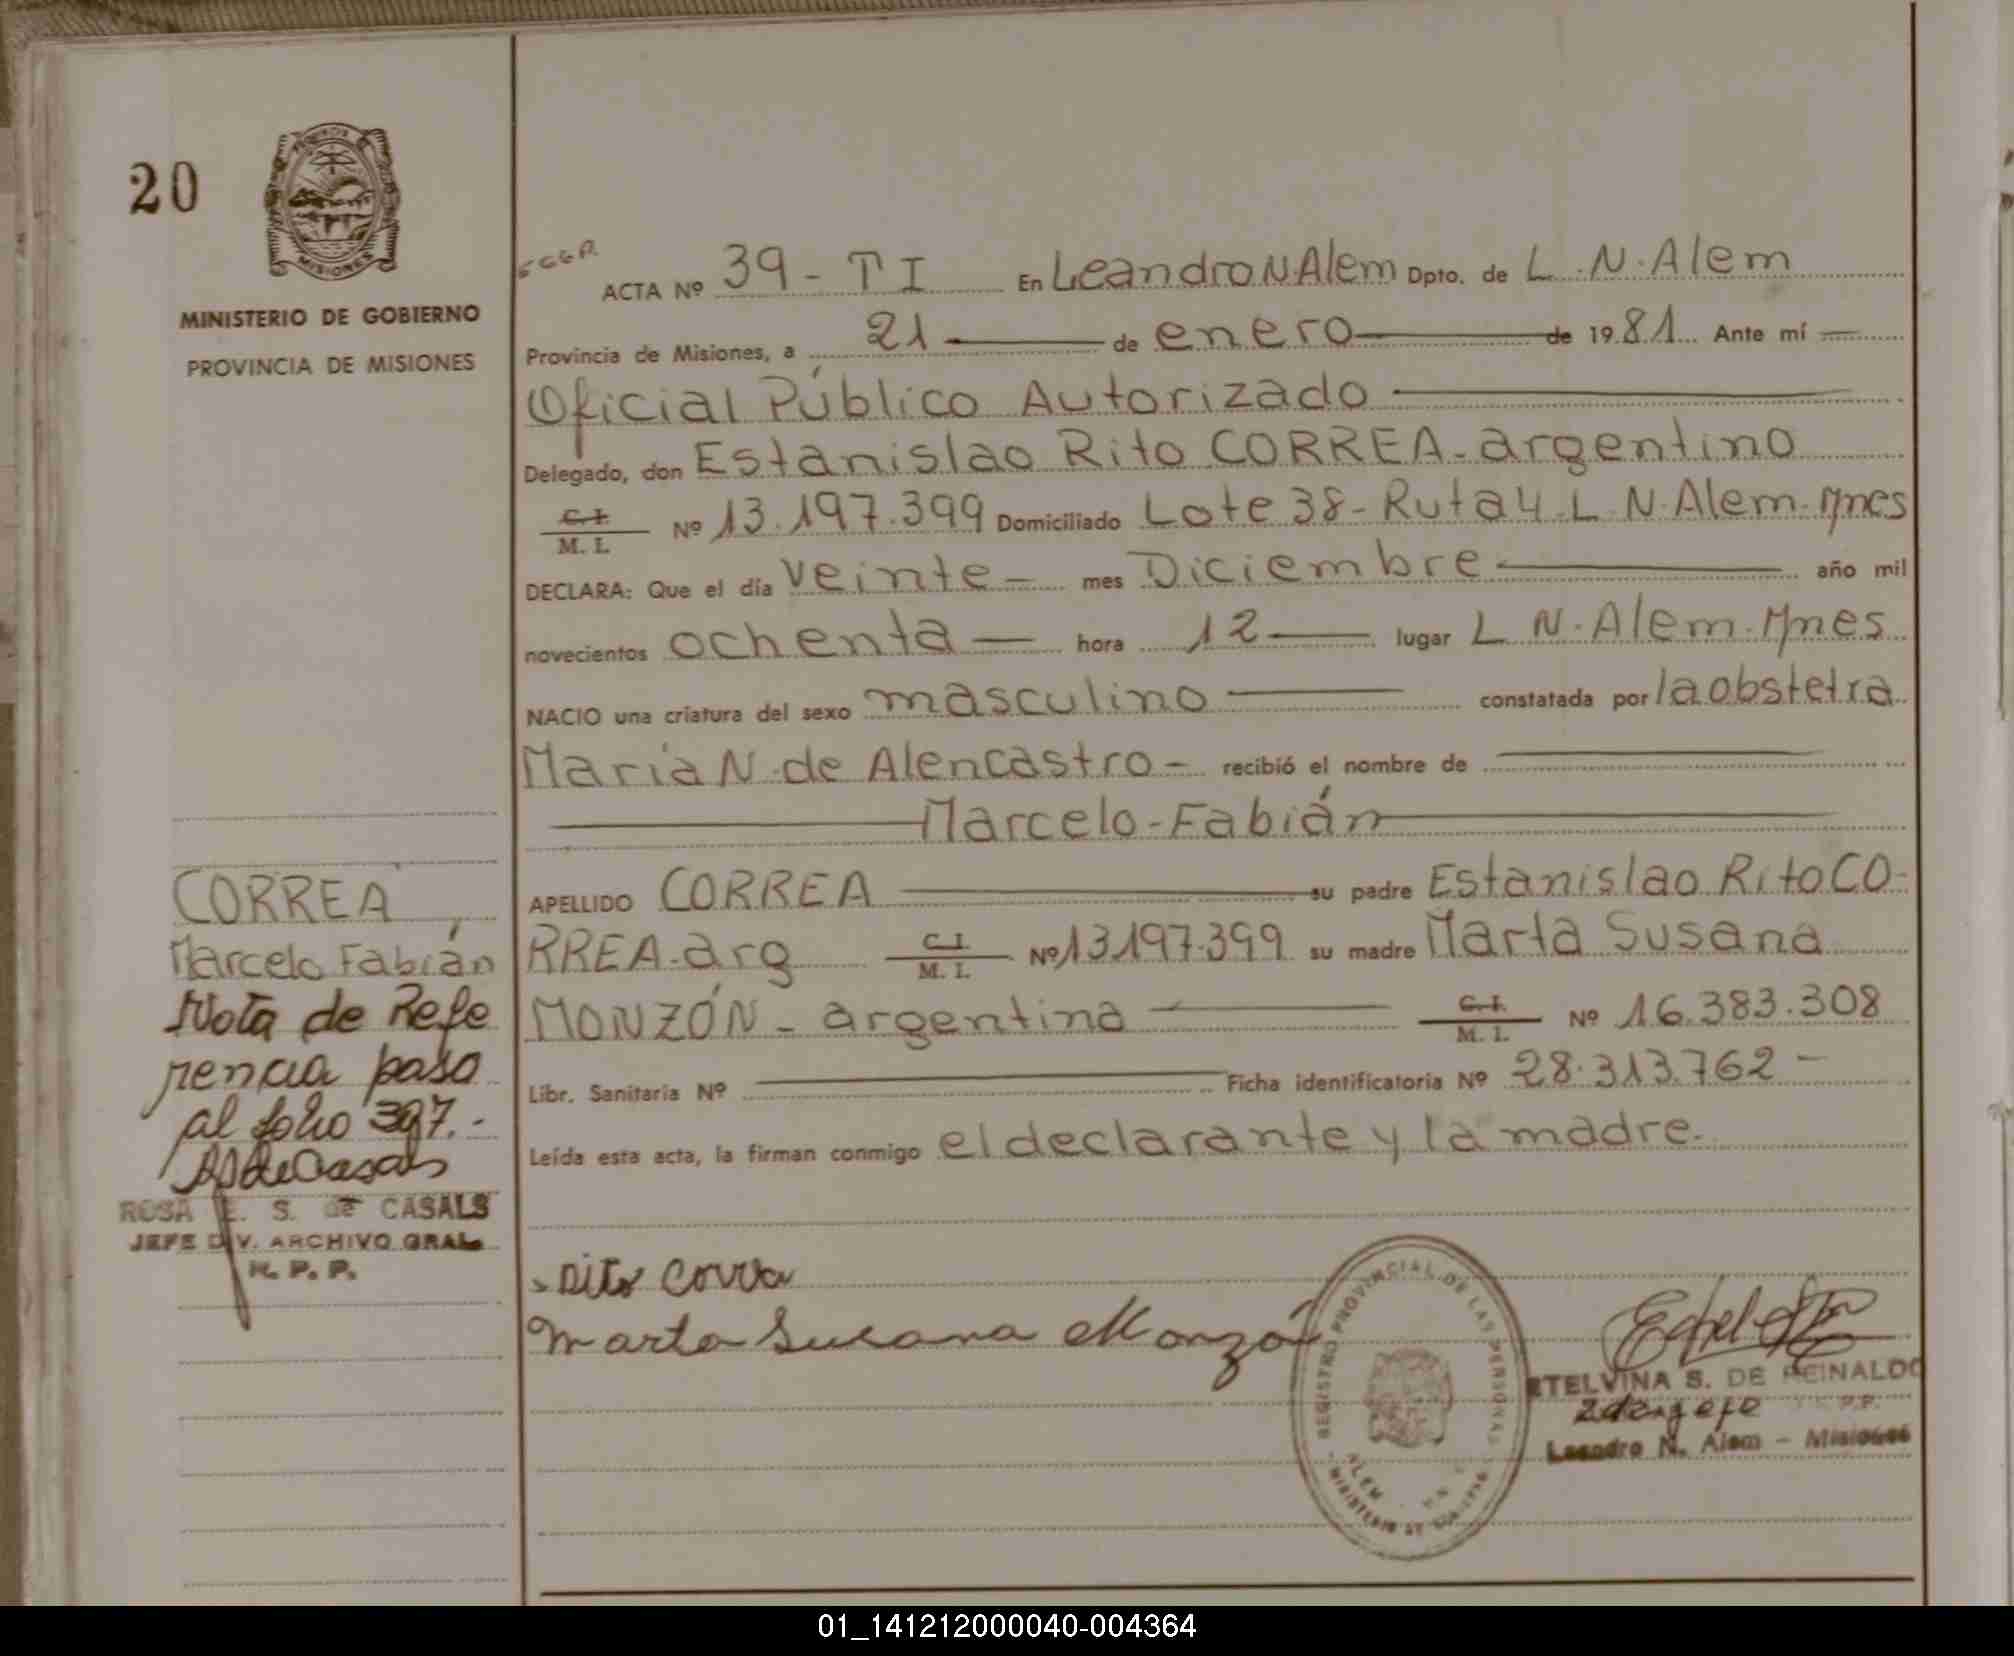 20
MISIONES
MINISTERIO DE GOBIERNO
PROVINCIA DE MISIONES
ACTA Nº 39 - T I En Leandro N. Alem Dpto. de L. N. Alem
Provincia de Misiones, a 21 de enero de 1981 Ante mí
Oficial Público Autorizado
Delegado, don Estanislao Rito CORREA - argentino
C. I.
M. I. Nº 13.197.399 Domiciliado Lote 38 - Ruta 4 L. N. Alem. Mnes
DECLARA: Que el día veinte - mes Diciembre año mil
novecientos ochenta hora 12 lugar L. N. Alem. Mnes
NACIO una criatura del sexo masculino constatada por la obstetra
Maria N. de Alencastro - recibió el nombre de
Marcelo - Fabián
APELLIDO CORREA su padre Estanislao Rito CO-
RREA - arg C. I.
M. I. Nº 13197.399 su madre Marta Susana
MONZÓN - argentina C. I.
M. I. Nº 16.383.308
Libr. Sanitaria Nº Ficha identificatoria Nº 28.313.762 -
Leída esta acta, la firman conmigo el declarante y la madre.
CORREA
Marcelo Fabián
Nota de Refe
rencia paso
al folio 397.-
ROSA E. S. de CASALS
JEFE DIV. ARCHIVO GRAL.
R. P. P.
Rito Correa
Marta Susana Monzón
REGISTRO PROVINCIAL DE LAS PERSONAS
ALEM
MINISTERIO DE GOBIERNO
ETELVINA S. DE REINALDO
2da Jefe
Leandro N. Alem - Misiones
01_141212000040-004364